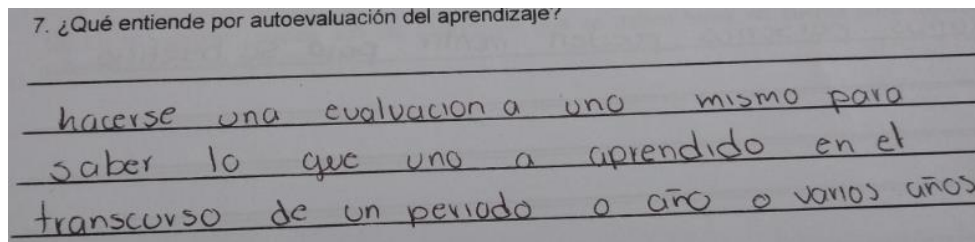 7. ¿Qué entiende por autoevaluación del aprendizaje?
hacerse una evaluacion a uno mismo para
saber lo que uno a aprendido en el
transcurso de un periodo o año o varios años